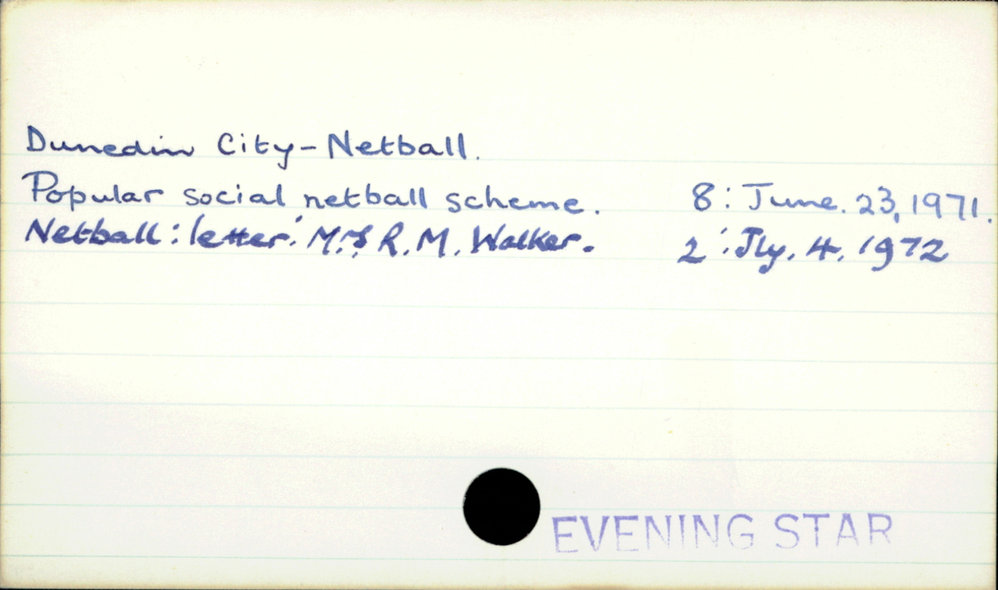 Dunedin City - Netball.
Popular social netball scheme. 8: June. 23, 1971.
Netball: letter: Mrs R. M. Walker. 2: Jly. 4. 1972
EVENING STAR